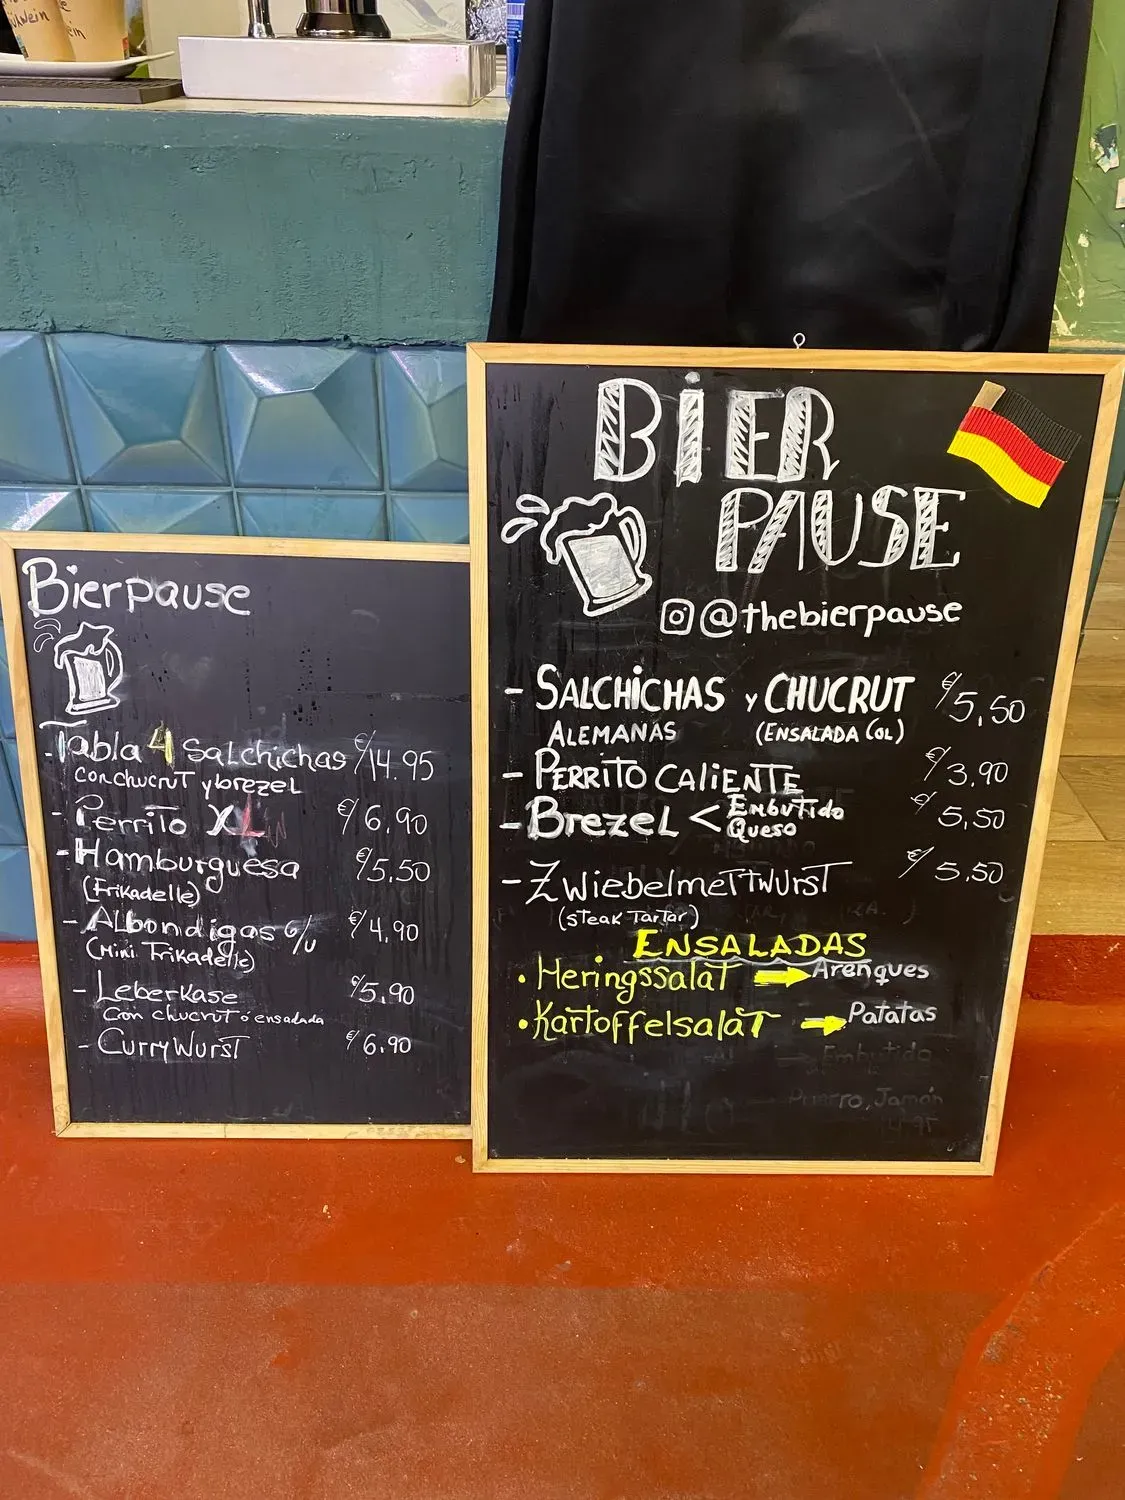 ühwein
ein
Bierpause
- Tabla 4 Salchichas €/14.95
con chucrut y brezel
- Perrito XL €/6,90
- Hamburguesa €/5,50
(Frikadelle)
- Albondigas c/u €/4,90
(Mini Frikadelle)
- Leberkase €/5,90
con chucrut ó ensalada
- CurryWurst €/6,90
BiER
PAUSE
@thebierpause
- SALCHiCHAS y CHUCRUT €/5,50
ALEMANAS (ENSALADA COL)
- PERRiTO CALiENTE €/3,90
- Brezel < Embutido €/5,50
Queso
- Zwiebelmettwurst €/5,50
(steak Tartar)
ENSALADAS
• Heringssalat Arenques
• Kartoffelsalat Patatas
Embutido
Puerro, Jamón